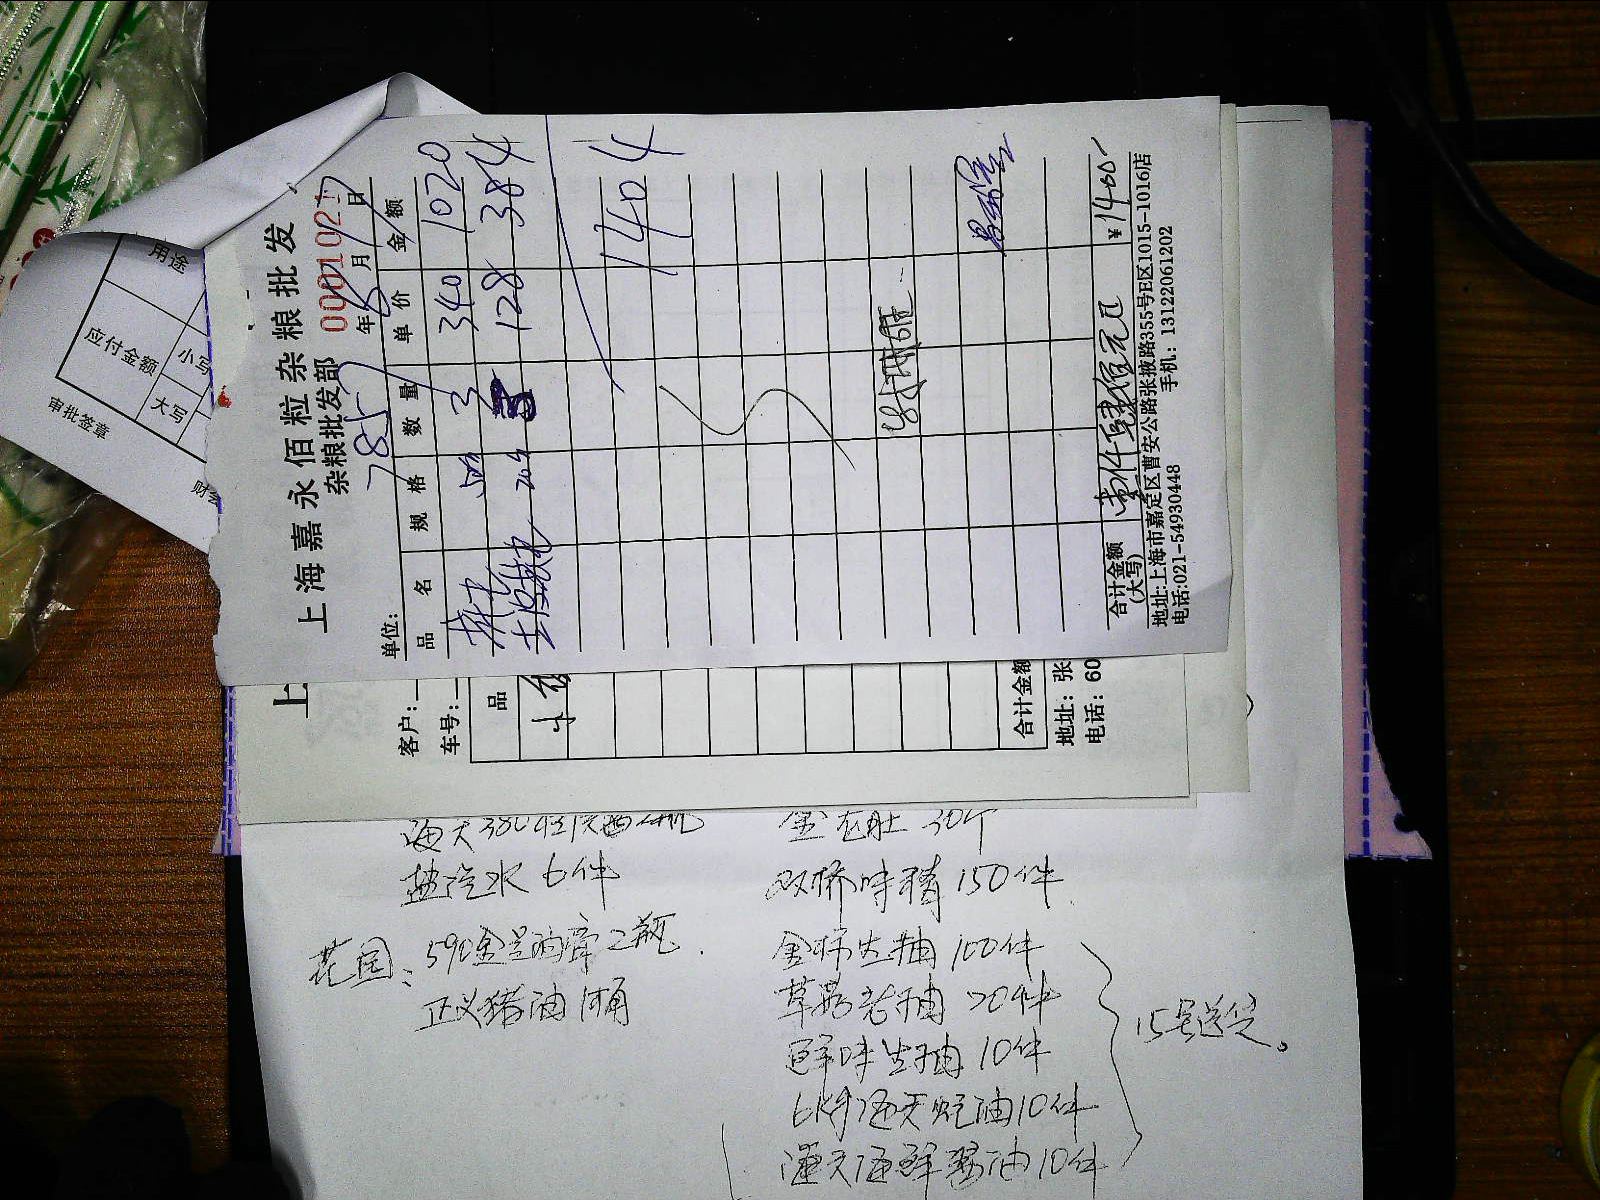 上海嘉永佰粒杂粮批发
杂粮批发部
0001021
785
年 6 月 17 日
单位:
品 名 规 格 数 量 单 价 金 额
3 340 1020
3 128 384
1404
合计金额 壹仟肆佰元正 ¥ 1400
(大写)
地址:上海市嘉定区曹安公路张掖路355号E区1015-1016店
电话:021-54930448 手机：13122061202
用途
应付金额 小写
大写
审批签章
财会
上
客户:
车号:
品
合计金额
地址: 张
电话: 60
盐汽水 6件
花园: 590金号油膏二瓶
正义猪油 1桶
金龙肚 30个
双桥味精 150件
金标生抽 100件
草菇老抽 20件
鲜味生抽 10件
6kg海天蚝油 10件
海天海鲜酱油 10件
15号送货。